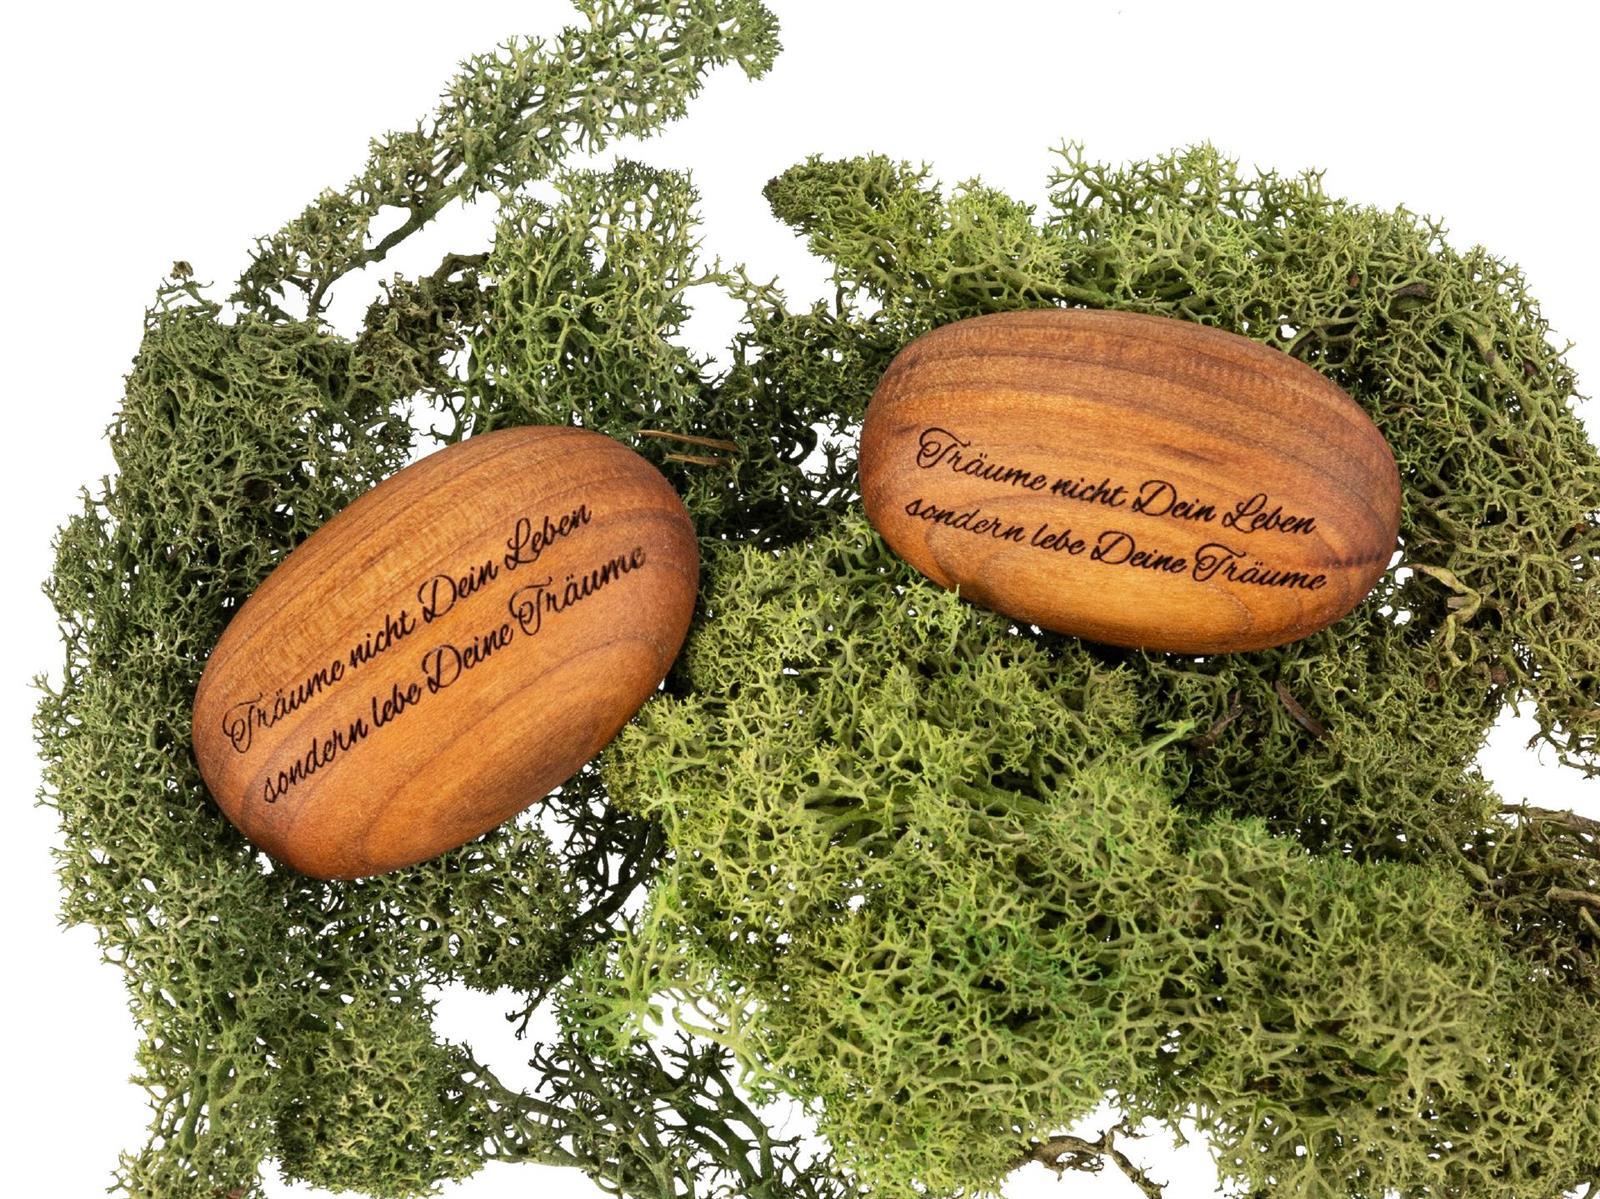 Träume nicht Dein Leben
sondern lebe Deine Träume
Träume nicht Dein Leben
sondern lebe Deine Träume